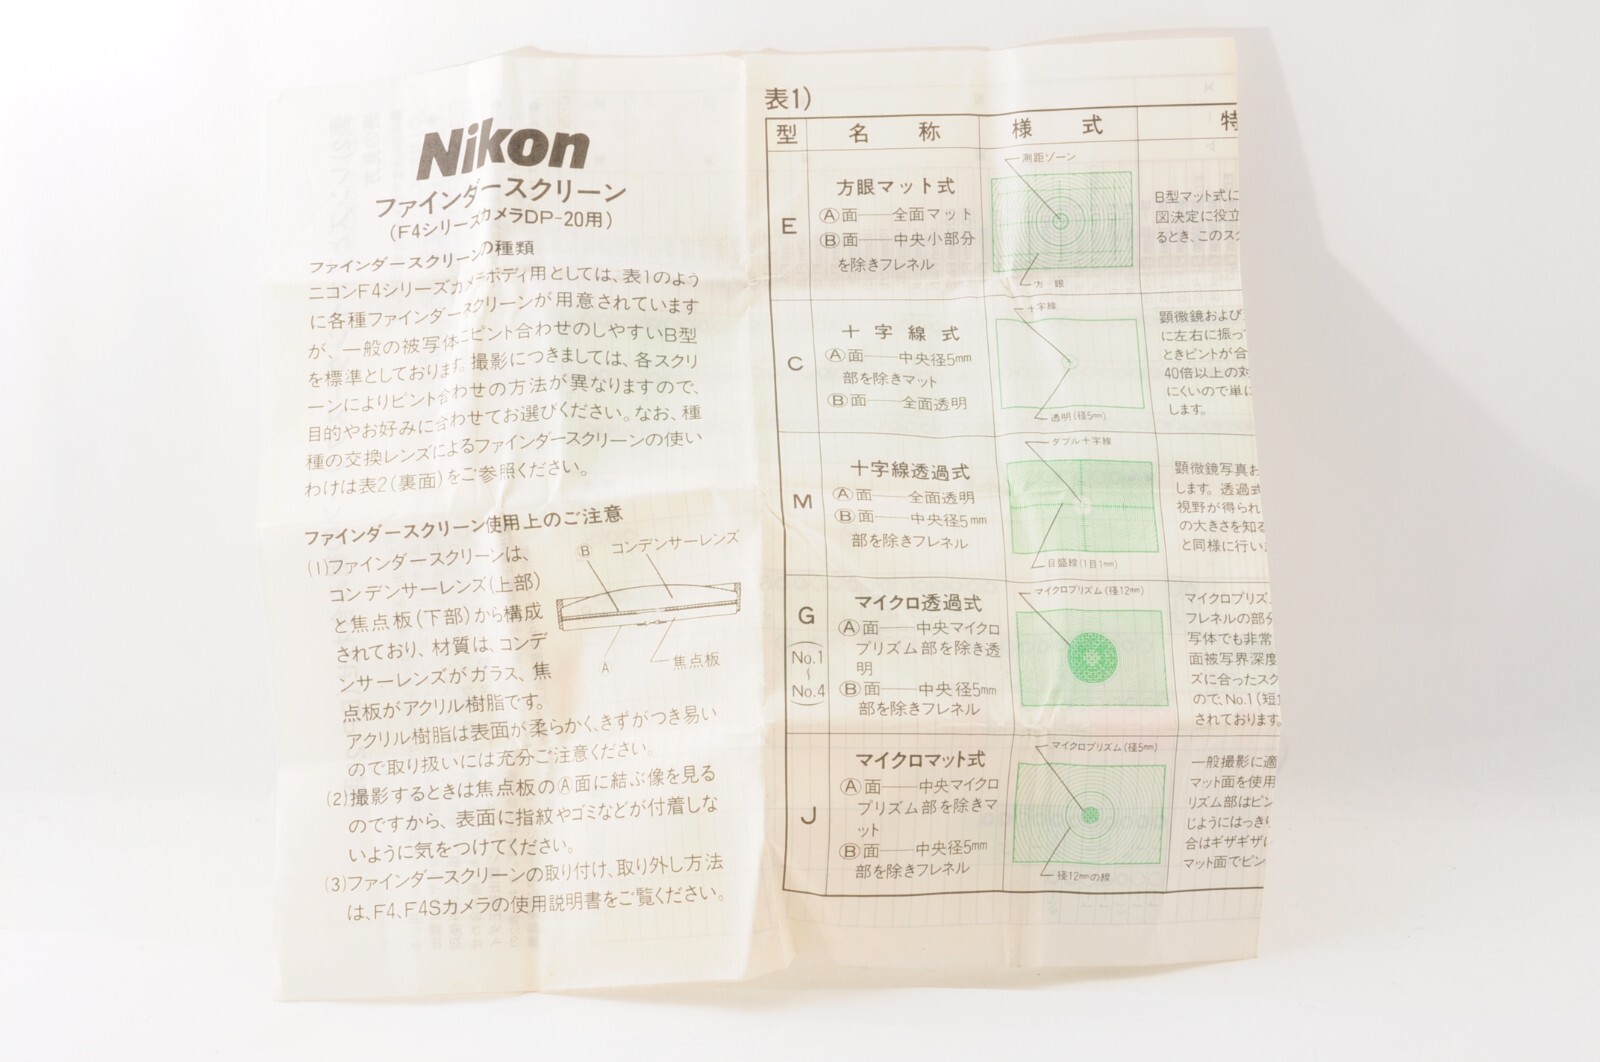 Nikon
ファインダースクリーン
(F4シリーズカメラDP-20用)
ファインダースクリーンの種類
ニコンF4シリーズカメラボディ用としては、表1のよう
に各種ファインダースクリーンが用意されています
が、一般の被写体にピント合わせのしやすいB型
を標準としております。撮影につきましては、各スクリ
ーンによりピント合わせの方法が異なりますので、
目的やお好みに合わせてお選びください。なお、種
種の交換レンズによるファインダースクリーンの使い
わけは表2(裏面)をご参照ください。
ファインダースクリーン使用上のご注意
(1)ファインダースクリーンは、
コンデンサーレンズ(上部)
と焦点板(下部)から構成
されており、材質は、コンデ
ンサーレンズがガラス、焦
点板がアクリル樹脂です。
アクリル樹脂は表面が柔らかく、きずがつき易い
ので取り扱いには充分ご注意ください。
(2)撮影するときは焦点板のⒶ面に結ぶ像を見る
のですから、表面に指紋やゴミなどが付着しな
いように気をつけてください。
(3)ファインダースクリーンの取り付け、取り外し方法
は、F4、F4Sカメラの使用説明書をご覧ください。
Ⓑ コンデンサーレンズ
A 焦点板
表1)
型 名称 様式 特
E
方眼マット式
Ⓐ面──全面マット
Ⓑ面──中央小部分
を除きフレネル
測距ゾーン
方眼
B型マット式に
図決定に役立
るとき、このスク
C
十字線式
Ⓐ面──中央径5mm
部を除きマット
Ⓑ面──全面透明
十字線
透明(径5mm)
顕微鏡および
に左右に振って
ときピントが合
40倍以上の対
にくいので単に
します。
M
十字線透過式
Ⓐ面──全面透明
Ⓑ面──中央径5mm
部を除きフレネル
ダブル十字線
目盛線(1目1mm)
顕微鏡写真お
します。透過式
視野が得られ
の大きさを知る
と同様に行い
G
(No.1
〜
No.4)
マイクロ透過式
Ⓐ面──中央マイクロ
プリズム部を除き透
明
Ⓑ面──中央径5mm
部を除きフレネル
マイクロプリズム(径12mm)
マイクロプリズ
フレネルの部分
写体でも非常
面被写界深度
ズに合ったスク
ので、No.1(短
されております。
J
マイクロマット式
Ⓐ面──中央マイクロ
プリズム部を除きマ
ット
Ⓑ面──中央径5mm
部を除きフレネル
マイクロプリズム(径5mm)
径12mmの線
一般撮影に適
マット面を使用
リズム部はピン
じようにはっきり
合はギザギザに
マット面でピン